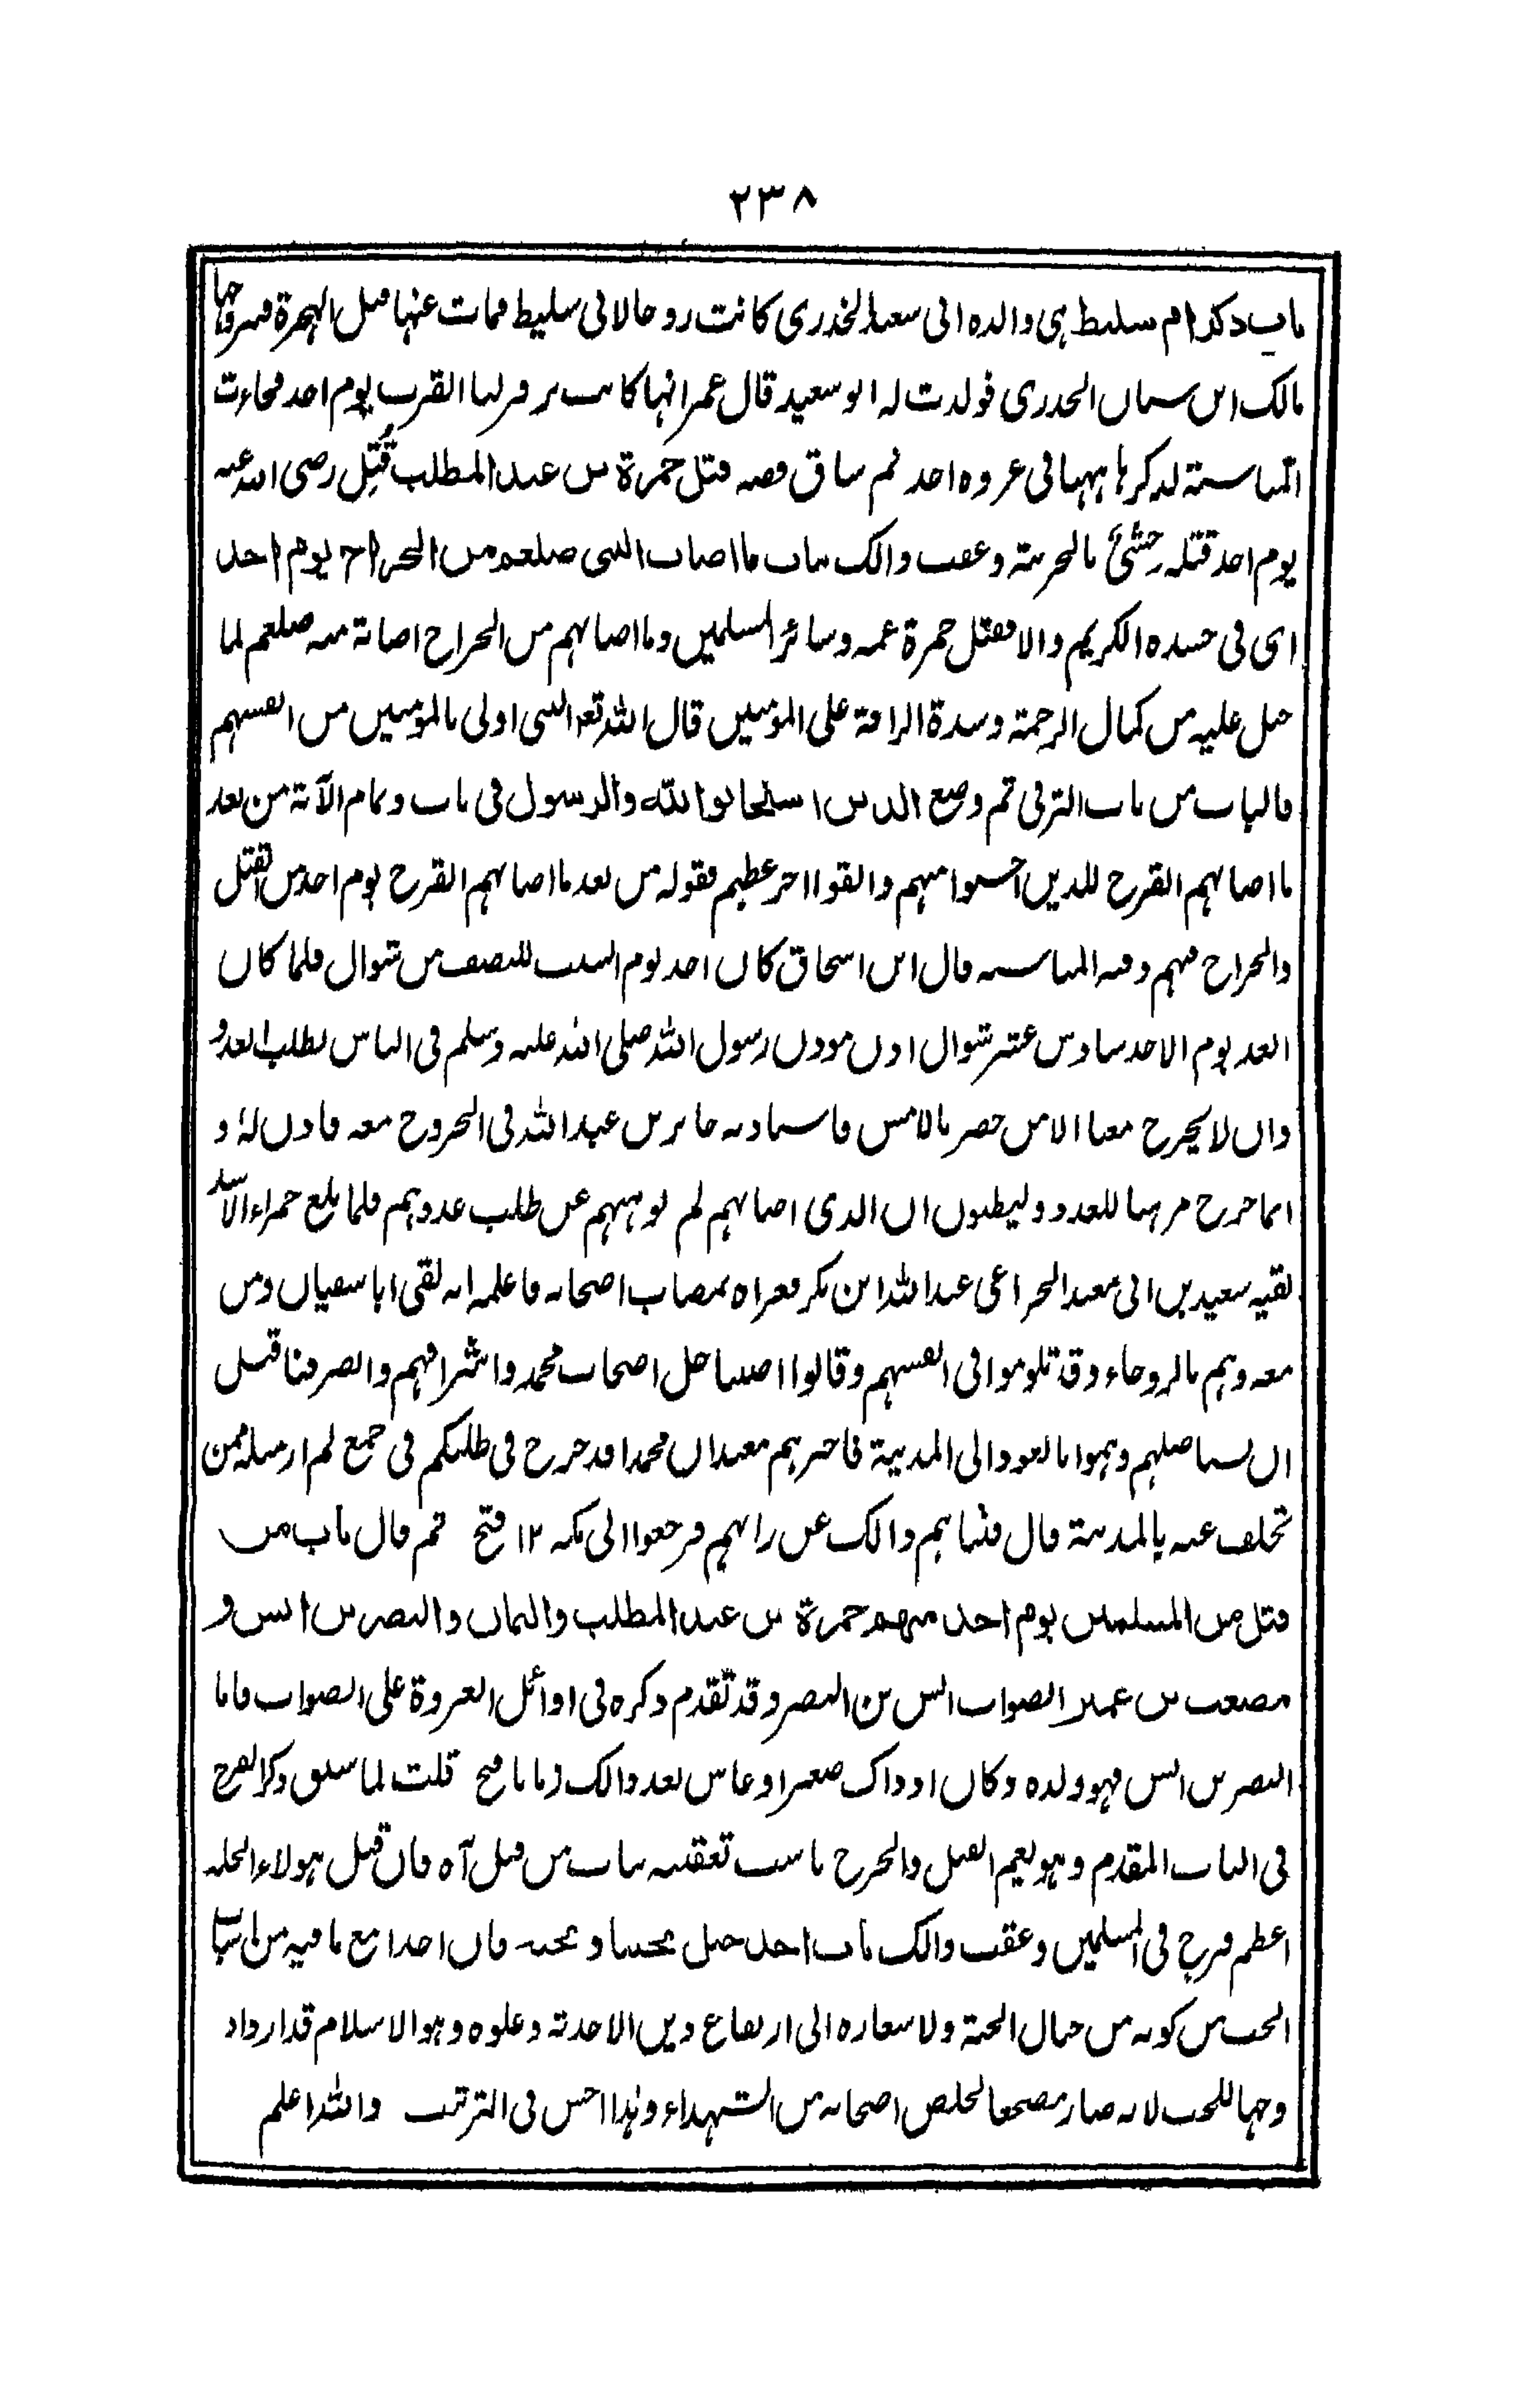 ٢٣٨
باب ذكر ام سليط هي والدة ابي سعيد الخدري كانت زوجا لابي سليط فمات عنها قبل الهجرة فتزوجها
مالك ابن سنان الخدري فولدت له ابو سعيد قال عمر انها كانت تزفر لنا القرب يوم احد فجاءت
المناسبة لذكرها ههنا في غزوة احد ثم ساق قصة قتل حمزة بن عبد المطلب قُتِل رضي الله عنه
يوم احد قتله وحشي بالحربة وعقب ذالك بباب ما اصاب النبي صلعم من الجراح يوم احد
اي في جسده الكريم والا فقتل حمزة عمه وسائر المسلمين وما اصابهم من الجراح اصابة منه صلعم لما
جبل عليه من كمال الرحمة وشدة الرافة على المؤمنين قال الله تع النبي اولى بالمؤمنين من انفسهم
فالباب من باب الترقي ثم وضع الذين استجابوا لله والرسول في باب وتمام الآية من بعد
ما اصابهم القرح للذين احسنوا منهم واتقوا اجر عظيم فقوله من بعد ما اصابهم القرح يوم احد من القتل
والجراح فهم وفيه المناسبة قال ابن اسحاق كان احد يوم السبت للنصف من شوال فلما كان
الغد يوم الاحد سادس عشر شوال اذن موذن رسول الله صلى الله عليه وسلم في الناس لطلب العدو
وان لا يخرج معنا الا من حضر بالامس فاستاذنه جابر بن عبد الله في الخروج معه فاذن له و
انما خرج مرهبا للعدو وليظنوا ان الذي اصابهم لم يوهنهم عن طلب عدوهم فلما بلغ حمراء الاسد
لقيه سعيد بن ابي معبد الخزاعي عبد الله ابن بكر فعزاه بمصاب اصحابه فاعلمه انه لقي ابا سفيان ومن
معه وهم بالروحاء وقد تلوموا في انفسهم وقالوا اصبنا جل اصحاب محمد واشرافهم وانصرفنا قبل
ان نستاصلهم وهموا بالعود الى المدينة فاخبرهم معبد ان محمدا قد خرج في طلبكم في جمع لم ار مثله ممن
تخلف عنه بالمدينة قال فثناهم ذالك عن رايهم فرجعوا الى مكة ١٢ فتح ثم قال باب من
قتل من المسلمين يوم احد منهم حمزة بن عبد المطلب واليمان والنضر بن انس و
مصعب بن عمير الصواب انس بن النضر وقد تقدم ذكره في اوائل الغزوة على الصواب فاما
النضر بن انس فهو ولده وكان اذ ذاك صغيرا وعاش بعد ذالك زمانا فتح قلت لما سبق ذكر القرح
في الباب المقدم وهو يعم القتل والجرح ناسب تعقيبه بباب من قتل آه فان قتل هولاء الجلة
اعظم قرح في المسلمين وعقب ذالك باب احد جبل يحبنا ونحبه فان احدا مع ما فيه من اسباب
الحب من كونه من جبال الجنة ولاشعاره الى ارتفاع دين الاحدية وعلوه وهو الاسلام قد ازداد
وجها للحب لانه صار مضجعا لخلص اصحابه من الشهداء وهذا احسن في الترتيب والله اعلم